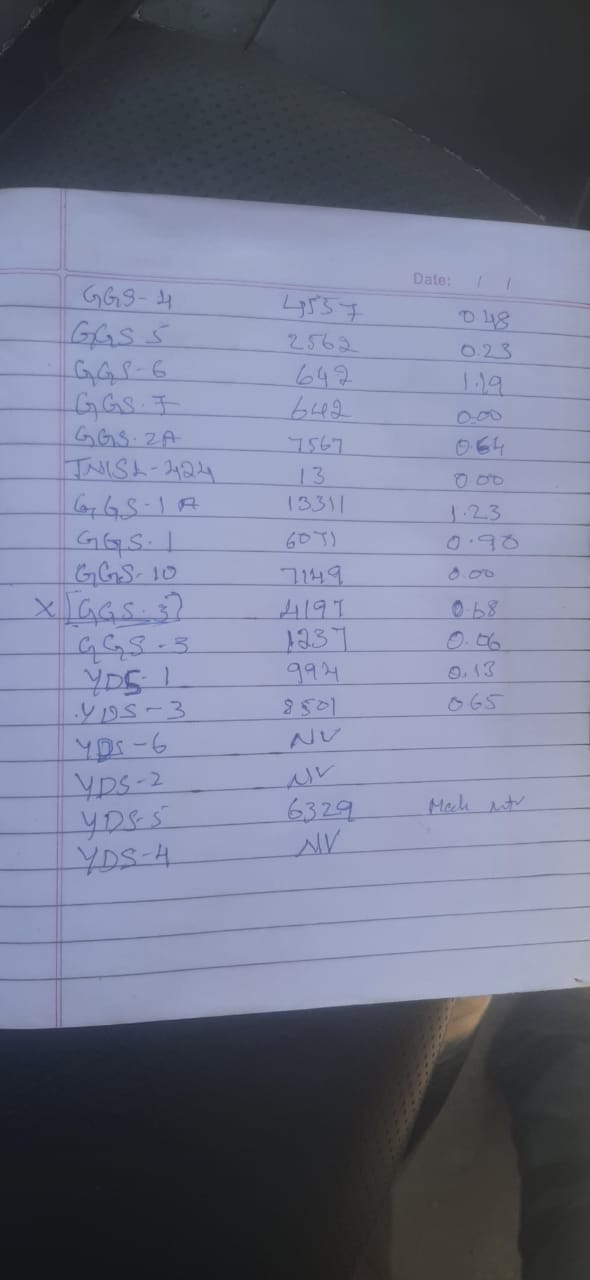 Date: / /
GGS-4 4537 0.48
GGS 5 2562 0.23
GGS-6 642 1.19
GGS-7 642 0.00
GGS-2A 7567 0.64
13 0.00
GGS-1A 13311 1.23
GGS-1 6071 0.90
GGS-10 7149 0.00
X [GGS-3] 4197 0.68
GGS-3 1237 0.06
YDS-1 994 0.13
YDS-3 8501 0.65
YDS-6 NV
YDS-2 NV
YDS-5 6329 Mech mtr
YDS-4 NV